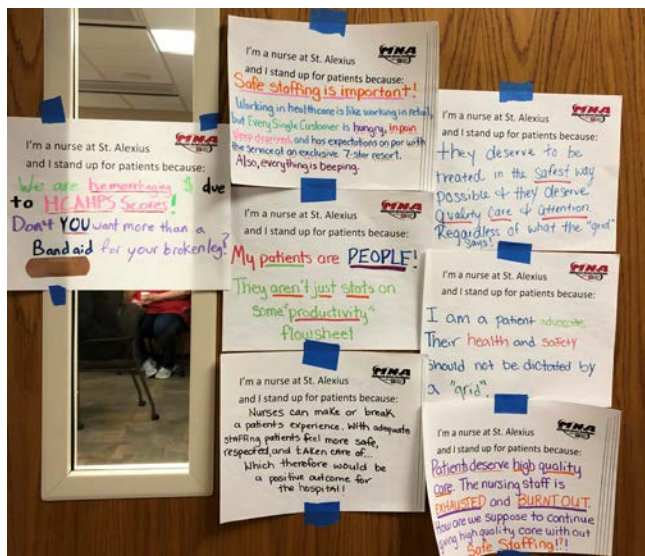 I'm a nurse at St. Alexius
MNA
and I stand up for patients because:
We are hemorrhaging $ due
to HCAHPS Scores!
Don't YOU want more than a
Bandaid for your broken leg?
I'm a nurse at St. Alexius
MNA
and I stand up for patients because:
Safe staffing is important!
Working in healthcare is like working in retail,
but Every Single Customer is hungry, in pain
sleep deprived and has expectations on par with
the service at an exclusive 7-star resort.
Also, everything is beeping.
I'm a nurse at St. Alexius
MNA
and I stand up for patients because:
My patients are PEOPLE!
They aren't just stats on
some "productivity"
flowsheet
I'm a nurse at St. Alexius
MNA
and I stand up for patients because:
Nurses can make or break
a patients experience. With adequate
staffing patients feel more safe,
respected, and taken care of...
Which therefore would be
a positive outcome for
the hospital!
I'm a nurse at St. Alexius
MNA
and I stand up for patients because:
they deserve to be
treated in the safest way
possible & they deserve
quality care & attention.
Regardless of what the "grid"
says!
I'm a nurse at St. Alexius
MNA
and I stand up for patients because:
I am a patient advocate
Their health and safety
should not be dictated by
a "grid".
I'm a nurse at St. Alexius
MNA
and I stand up for patients because:
Patients deserve high quality
care. The nursing staff is
EXHAUSTED and BURNT OUT.
How are we suppose to continue
giving high quality care with out
Safe Staffing!?!